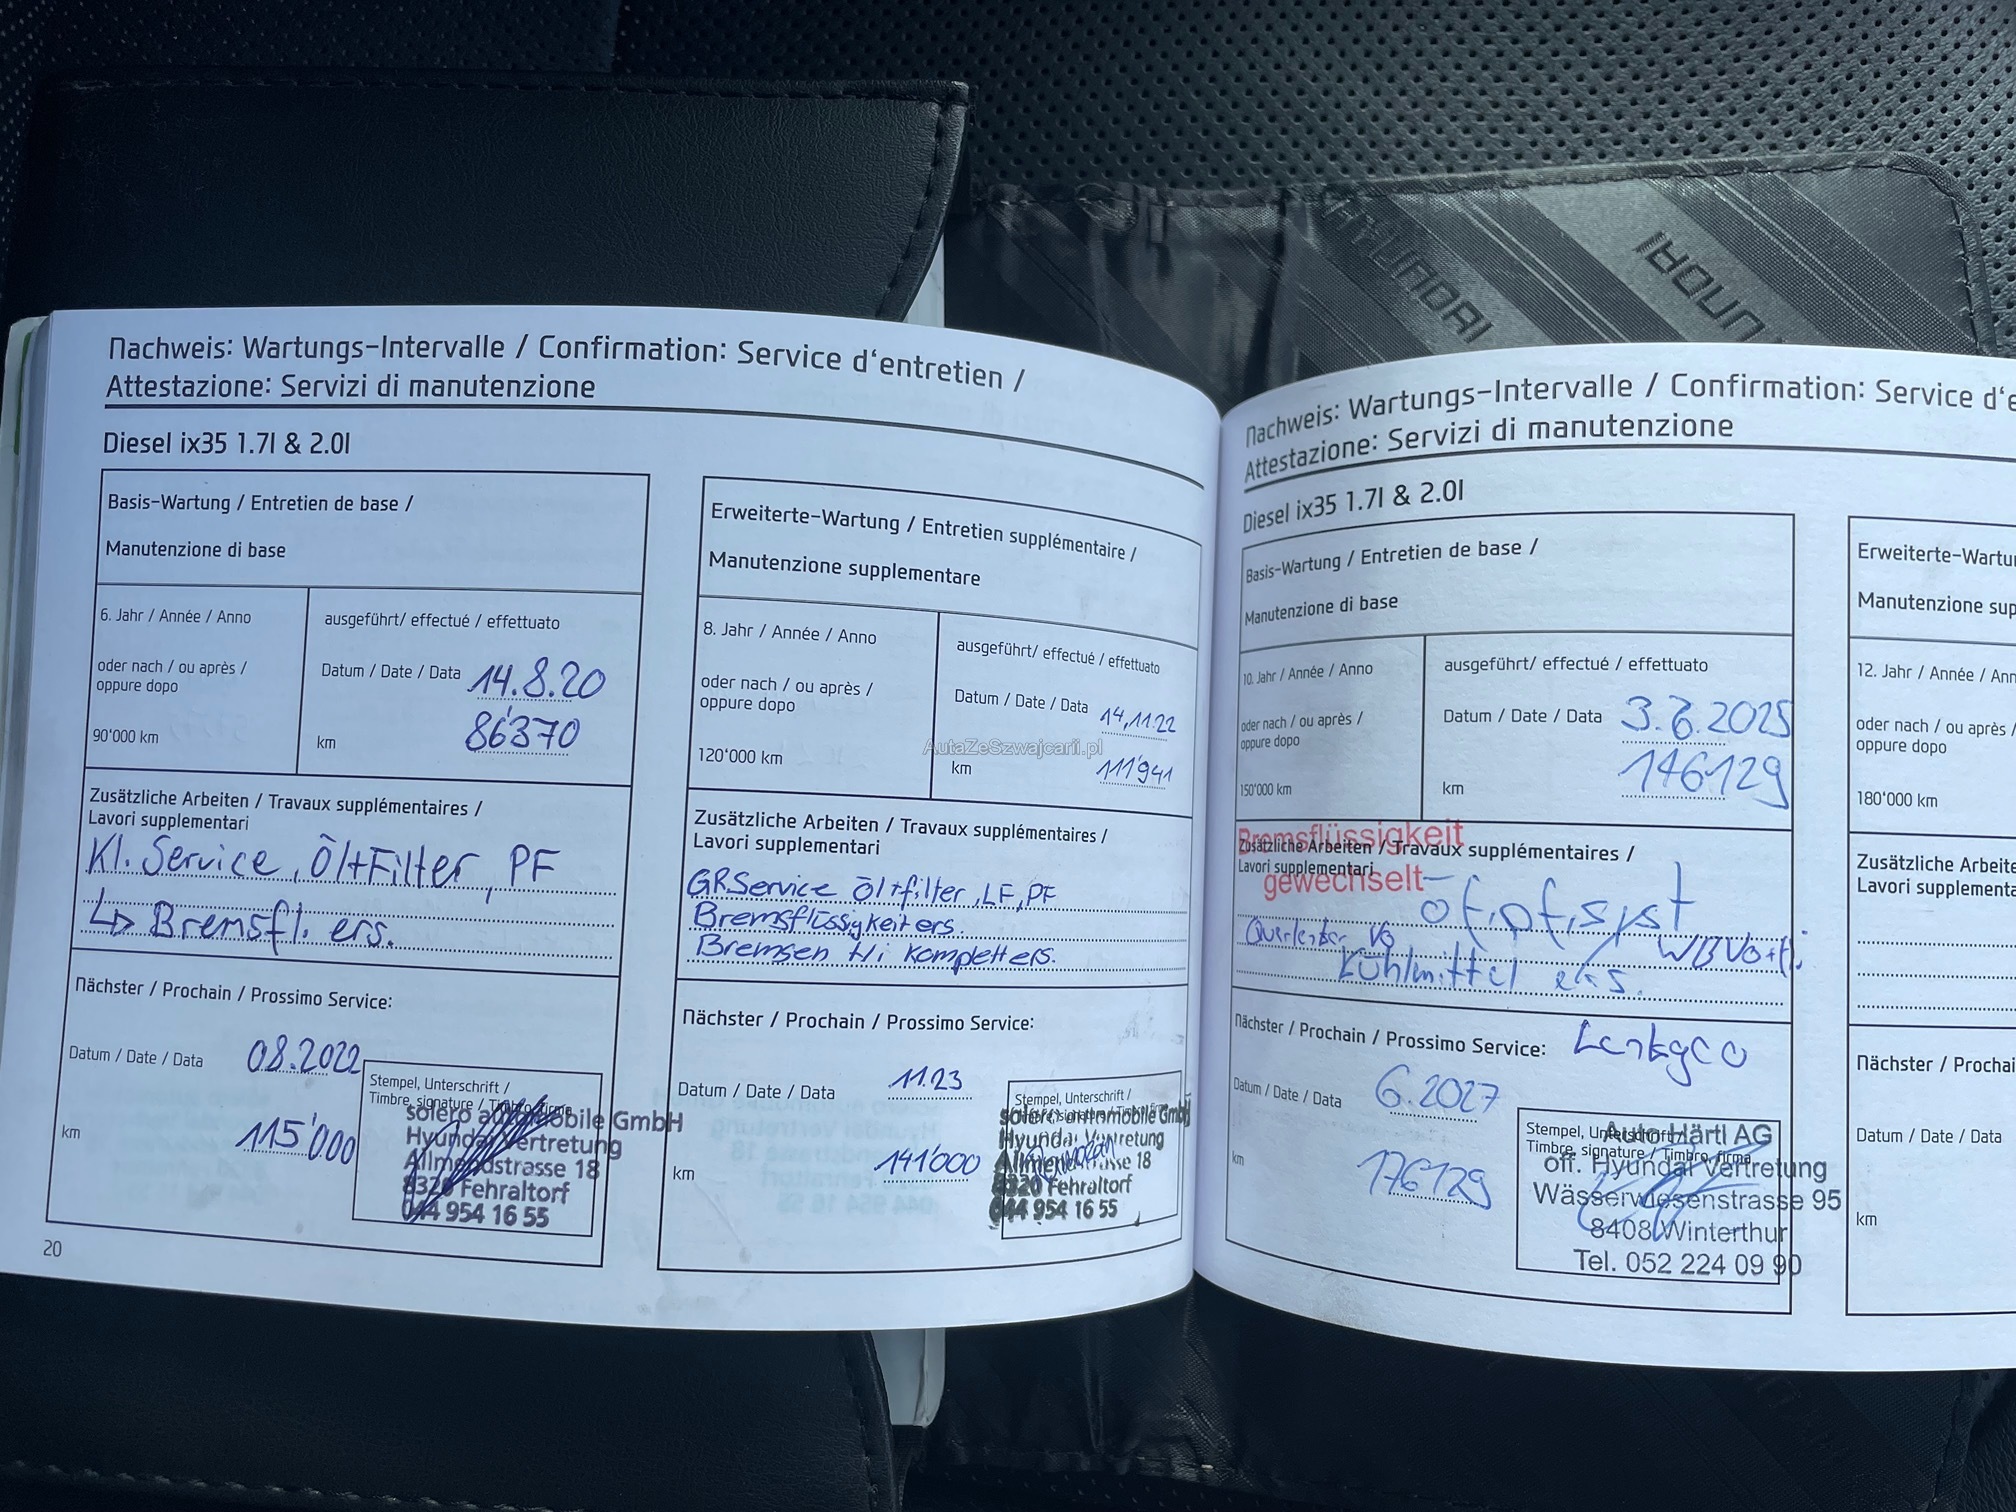 HYUNDAI
HYUNDAI
Nachweis: Wartungs-Intervalle / Confirmation: Service d'entretien /
Attestazione: Servizi di manutenzione
Diesel ix35 1.7l & 2.0l
Basis-Wartung / Entretien de base /
Manutenzione di base
6. Jahr / Année / Anno
oder nach / ou après /
oppure dopo
90'000 km
ausgeführt/ effectué / effettuato
Datum / Date / Data 14.8.20
km 86'370
Zusätzliche Arbeiten / Travaux supplémentaires /
Lavori supplementari
Kl. Service, Öl+Filter, PF
↳ Bremsfl. ers.
Nächster / Prochain / Prossimo Service:
Datum / Date / Data 08.2022
km 115'000
Stempel, Unterschrift /
Timbre, signature / Timbro, firma
solero automobile GmbH
Hyundai Vertretung
Allmendstrasse 18
8320 Fehraltorf
044 954 16 55
20
Erweiterte-Wartung / Entretien supplémentaire /
Manutenzione supplementare
8. Jahr / Année / Anno
oder nach / ou après /
oppure dopo
120'000 km
ausgeführt/ effectué / effettuato
Datum / Date / Data 14.11.22
km 111'941
AutaZeSzwajcarii.pl
Zusätzliche Arbeiten / Travaux supplémentaires /
Lavori supplementari
GR.Service Öl+filter, LF, PF
Bremsflüssigkeit ers.
Bremsen Hi komplett ers.
Nächster / Prochain / Prossimo Service:
Datum / Date / Data 11.23
km 141'000
Stempel, Unterschrift /
Timbre, signature / Timbro, firma
solero automobile GmbH
Hyundai Vertretung
Allmendstrasse 18
8320 Fehraltorf
044 954 16 55
Nachweis: Wartungs-Intervalle / Confirmation: Service d'e
Attestazione: Servizi di manutenzione
Diesel ix35 1.7l & 2.0l
Basis-Wartung / Entretien de base /
Manutenzione di base
10. Jahr / Année / Anno
oder nach / ou après /
oppure dopo
150'000 km
ausgeführt/ effectué / effettuato
Datum / Date / Data 3.6.2025
km 146129
Bremsflüssigkeit
gewechselt
Zusätzliche Arbeiten / Travaux supplémentaires /
Lavori supplementari
Querlenker
Kühlmittel ers.
Nächster / Prochain / Prossimo Service:
Datum / Date / Data 6.2027
km 176129
Stempel, Unterschrift /
Timbre, signature / Timbro, firma
Auto Härtl AG
off. Hyundai Vertretung
Wässerwiesenstrasse 95
8408 Winterthur
Tel. 052 224 09 90
Erweiterte-Wartu
Manutenzione sup
12. Jahr / Année / Ann
oder nach / ou après /
oppure dopo
180'000 km
Zusätzliche Arbeite
Lavori supplementa
Nächster / Prochai
Datum / Date / Data
km